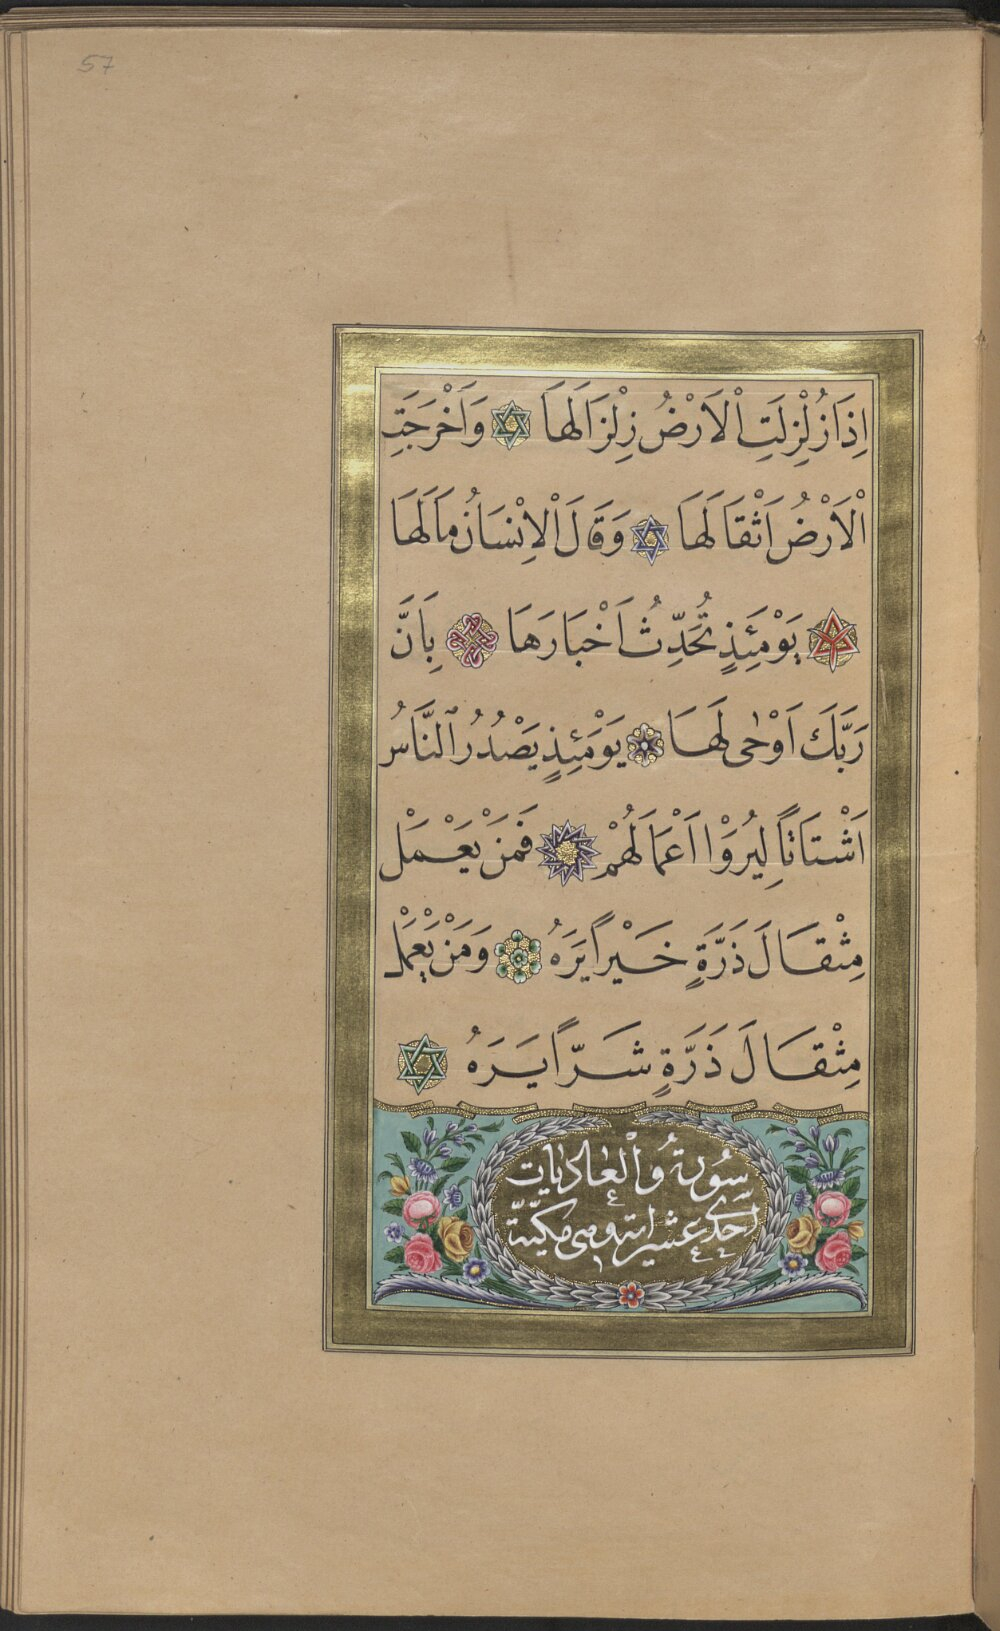 57
اِذَا زُلْزِلَتِ الْاَرْضُ زِلْزَالَهَا وَاَخْرَجَتِ
الْاَرْضُ اَثْقَالَهَا وَقَالَ الْاِنْسَانُ مَالَهَا
يَوْمَئِذٍ تُحَدِّثُ اَخْبَارَهَا بِاَنَّ
رَبَّكَ اَوْحٰى لَهَا يَوْمَئِذٍ يَصْدُرُ النَّاسُ
اَشْتَاتًا لِيُرَوْا اَعْمَالَهُمْ فَمَنْ يَعْمَلْ
مِثْقَالَ ذَرَّةٍ خَيْرًا يَرَهُ وَمَنْ يَعْمَلْ
مِثْقَالَ ذَرَّةٍ شَرًّا يَرَهُ
سُورَةُ وَالْعَادِيَات
اَحَدَى عشر اية وهى مكيّة